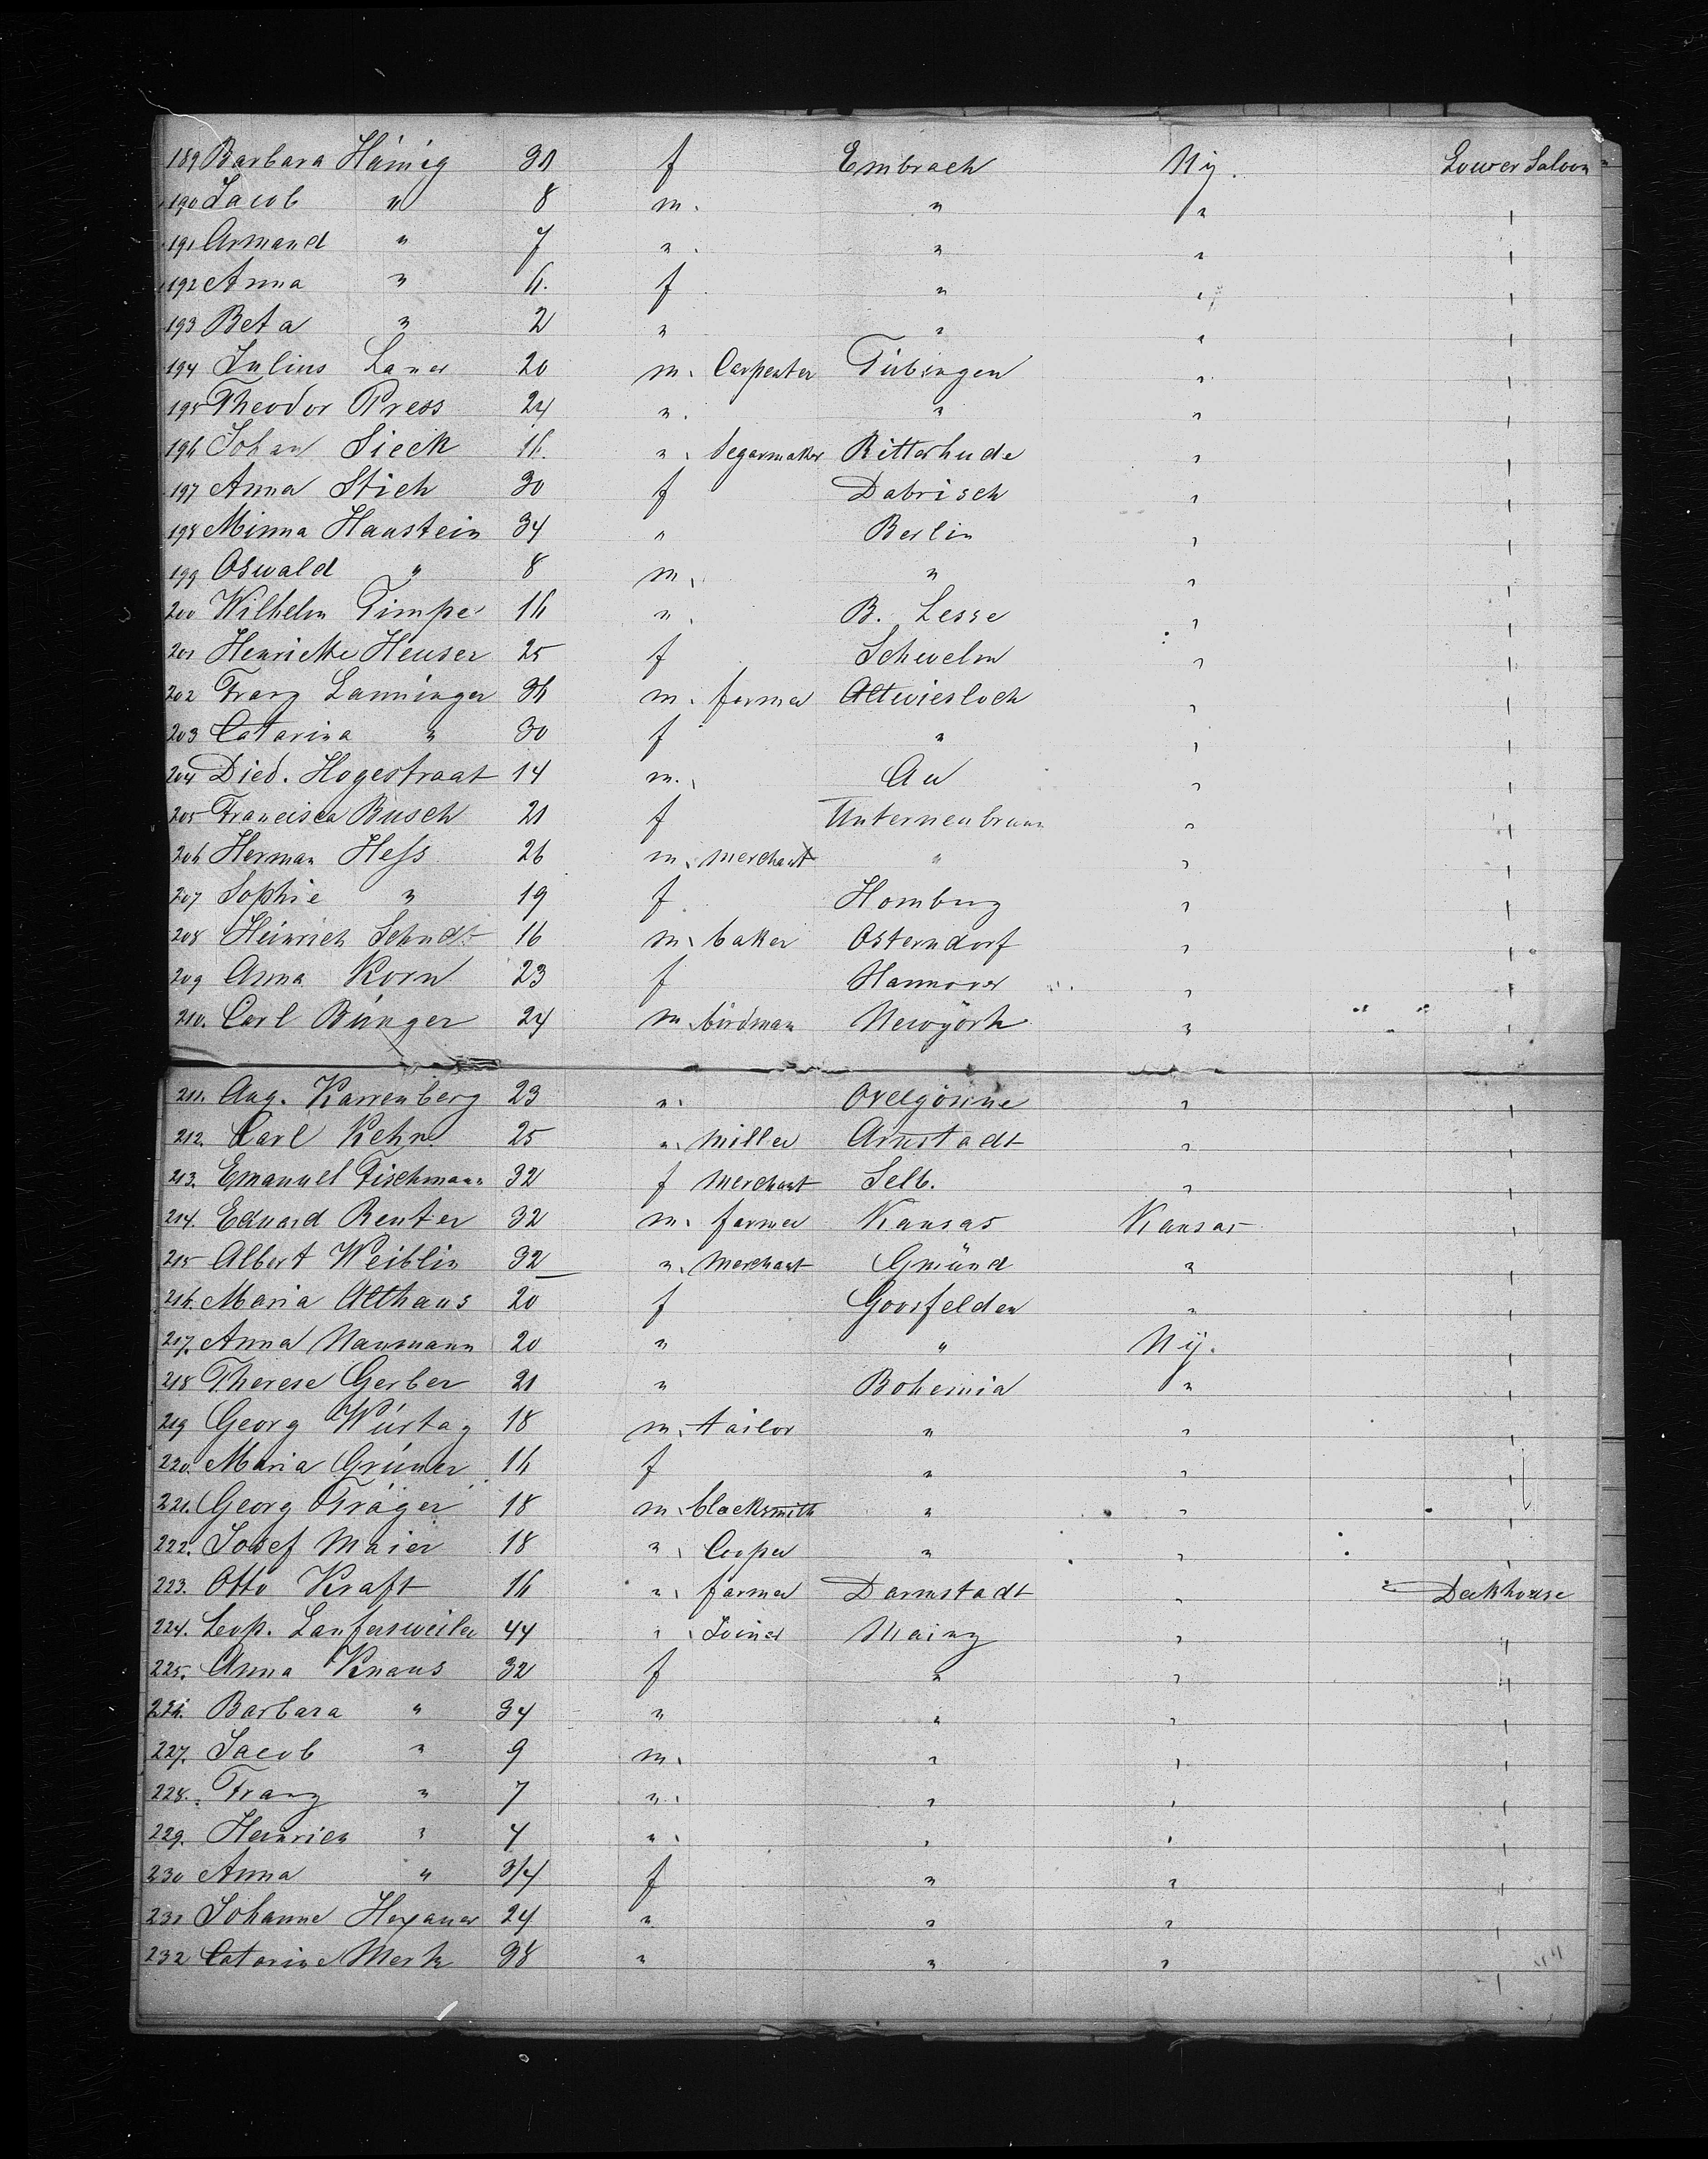 189 Barbara Hämig 31 f Embrach Ny. Lower Saloon
190 Jacob " 8 m. " " "
191 Armand " 7 " " " "
192 Anna " 6. f " " "
193 Beta " 2 " " " "
194 Julius Lauer 20 m. Carpenter Tübingen " "
195 Theodor Press 24 " " " "
196 Johan Sieck 16. " Segarmaker Ritterhude " "
197 Anna Stich 30 f Dabrisch " "
198 Minna Haustein 34 " Berlin " "
199 Oswald " 8 m. " " "
200 Wilhelm Timpe 16 " B. Lesse " "
201 Henriette Heuser 25 f Schwelm " "
202 Franz Lanninger 36 m. farmer Altwiesloch " "
203 Catarina " 30 f " " "
204 Died. Hogestraat 14 m. Au " "
205 Francisca Busch 21 f Unterneubrunn " "
206 Herman Hess 26 m. merchant " " "
207 Sophie " 19 f Homburg " "
208 Heinrich Schudt 16 m. baker Osterndorf " "
209 Anna Korn 23 f Hannover " "
210. Carl Bünger 24 m. birdman Newyörk " "
211. Aug. Karrenberg 23 " Ovelgönne " "
212. Carl Kehr 25 " Miller Arnstadt " "
213. Emanuel Fischmann 32 f Merchant Selb. " "
214. Eduard Reuter 32 m. farmer Kansas Kansas "
215 Albert Weiblin 32 " Merchant Gmünd " "
216. Maria Althaus 20 f Goosfelden " "
217. Anna Naumann 20 " " Ny. "
218 Therese Gerber 21 " Bohemia " "
219 Georg Würtag 18 m. tailor " " "
220. Maria Grüner 16 f " " "
221. Georg Träger 18 m. blacksmith " " "
222. Josef Maier 18 " Cooper " " "
223. Otto Kraft 16 " farmer Darmstadt " Deckhouse
224. Leop. Laufersweiler 44 " Joiner Mainz " "
225. Anna Knaus 32 f " " "
226. Barbara " 34 " " " "
227. Jacob " 9 m. " " "
228. Franz " 7 " " " "
229. Heinrich " 4 " " " "
230 Anna " 3/4 f " " "
231 Johanne Hexauer 24 " " " "
232 Catarine Merk 38 " " " "